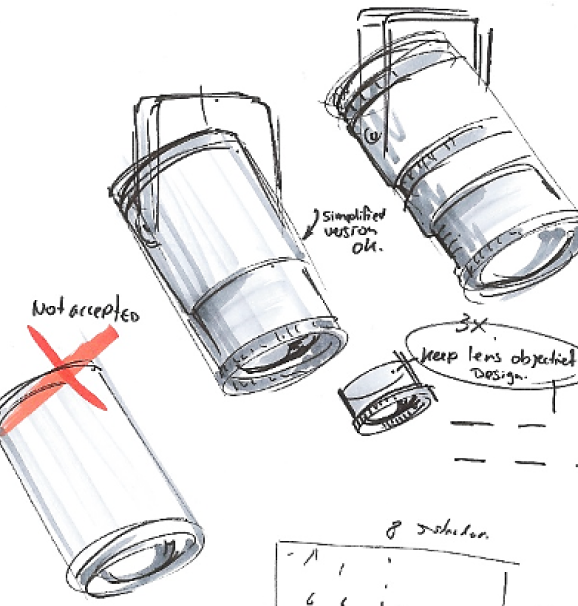 Simplified
version
OK.
Not accepted
3x
keep lens objectief
Design.
8